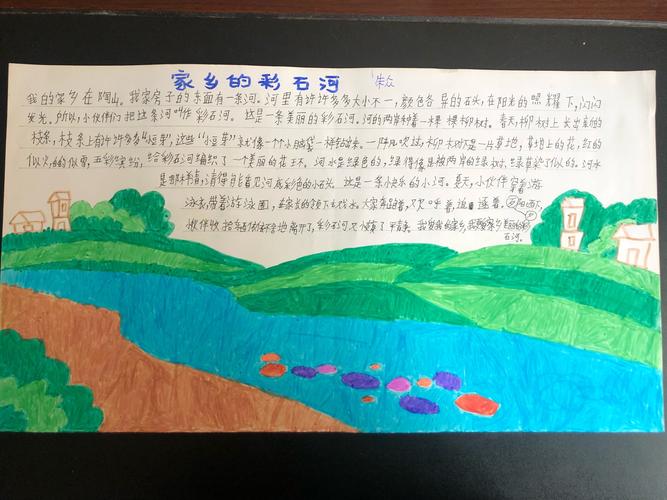 家乡的彩石河 朱众
我的家乡在陶山。我家房子的东面有一条河。河里有许许多多大小不一,颜色各异的石头,在阳光的照耀下,闪闪
发光。所以,小伙伴们把这条河叫作彩石河。这是一条美丽的彩石河。河的两岸种着一棵棵柳树。春天,柳树上长出来的
枝条,枝条上有许许多多“小豆芽”,这些“小豆芽”就像一个个小脑袋一样钻出来。一阵风吹过,柳树下是一片草地,草地上的花,红的
似火,白的似雪,五彩缤纷,给彩石河编织了一个美丽的花环。河水是绿色的,绿得像是被两岸的绿树、绿草染了似的。河水
是那样清,清得能看见河底彩色的小石头。这是一条小快乐的小河。夏天,小伙伴穿着游
泳衣,带着游泳圈,在家长的带领下去戏水。大家奔跑着,又呼喊着,追逐着。夕阳西下,
小伙伴们依依不舍地离开了,彩石河又恢复了平静。我爱我的家乡,我更爱家乡美丽的彩
石河。